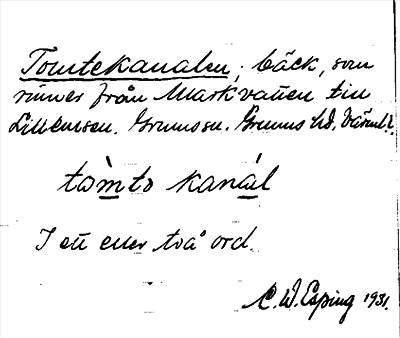 Tomtekanalen, bäck, som
rinner från Markvatten till
Lillemsen. Grums sn. Grums hd, Värml.
tòmtɵ kanál
I ett eller två ord.
C. W. Esping 1931.